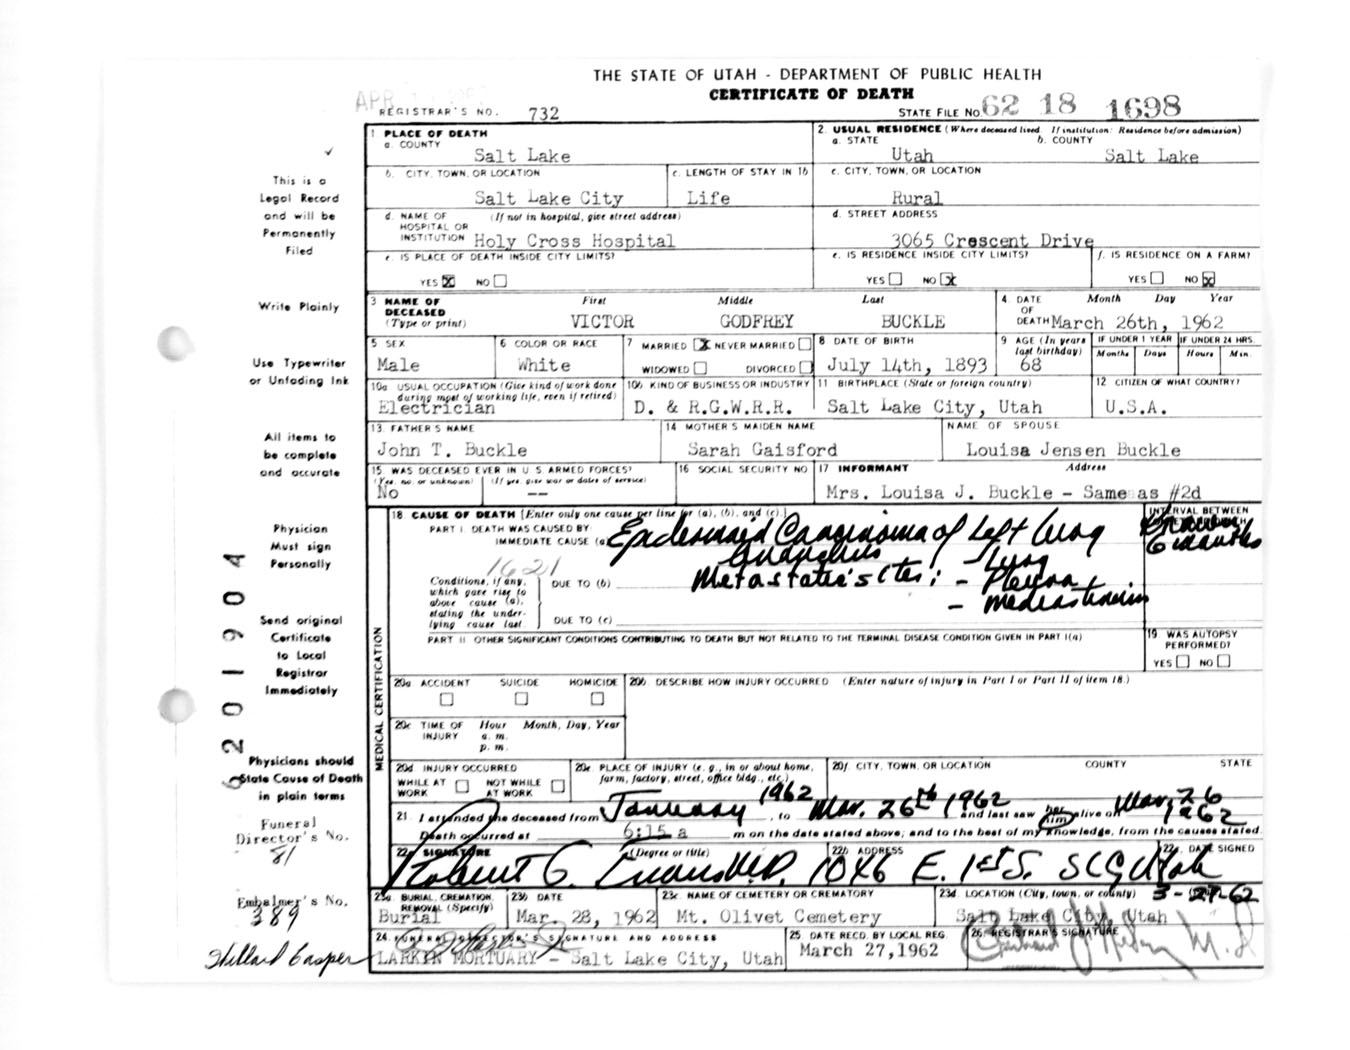 THE STATE OF UTAH - DEPARTMENT OF PUBLIC HEALTH
CERTIFICATE OF DEATH
APR
REGISTRAR'S NO. 732
STATE FILE NO. 62 18 1698
1 PLACE OF DEATH
a. COUNTY
Salt Lake
2. USUAL RESIDENCE (Where deceased lived. If institution: Residence before admission)
a. STATE
Utah
b. COUNTY
Salt Lake
b. CITY, TOWN, OR LOCATION
Salt Lake City
c. LENGTH OF STAY IN 1b
Life
c. CITY, TOWN, OR LOCATION
Rural
d. NAME OF HOSPITAL OR INSTITUTION (If not in hospital, give street address)
Holy Cross Hospital
d. STREET ADDRESS
3065 Crescent Drive
e. IS PLACE OF DEATH INSIDE CITY LIMITS?
YES X NO
e. IS RESIDENCE INSIDE CITY LIMITS?
YES NO X
f. IS RESIDENCE ON A FARM?
YES NO X
3 NAME OF DECEASED (Type or print)
First Middle Last
VICTOR GODFREY BUCKLE
4. DATE OF DEATH Month Day Year
March 26th, 1962
5 SEX
Male
6 COLOR OR RACE
White
7 MARRIED X NEVER MARRIED
WIDOWED DIVORCED
8 DATE OF BIRTH
July 14th, 1893
9 AGE (In years last birthday)
68
IF UNDER 1 YEAR
Months Days
IF UNDER 24 HRS.
Hours Min.
10a USUAL OCCUPATION (Give kind of work done during most of working life, even if retired)
Electrician
10b KIND OF BUSINESS OR INDUSTRY
D. & R.G.W.R.R.
11 BIRTHPLACE (State or foreign country)
Salt Lake City, Utah
12 CITIZEN OF WHAT COUNTRY?
U.S.A.
13. FATHER'S NAME
John T. Buckle
14 MOTHER'S MAIDEN NAME
Sarah Gaisford
NAME OF SPOUSE
Louisa Jensen Buckle
15 WAS DECEASED EVER IN U. S. ARMED FORCES?
(Yes, no, or unknown) (If yes, give war or dates of service)
No --
16 SOCIAL SECURITY NO
17 INFORMANT Address
Mrs. Louisa J. Buckle - Same as #2d
18 CAUSE OF DEATH [Enter only one cause per line for (a), (b), and (c).]
INTERVAL BETWEEN
PART I DEATH WAS CAUSED BY:
IMMEDIATE CAUSE (a) Epidermoid Carcinoma of Left lung
6 months
1621
Conditions, if any, which gave rise to above cause (a), stating the underlying cause last.
DUE TO (b)
Metastatic sites: - Lung
- Pleura
- Mediastinum
DUE TO (c)
PART II OTHER SIGNIFICANT CONDITIONS CONTRIBUTING TO DEATH BUT NOT RELATED TO THE TERMINAL DISEASE CONDITION GIVEN IN PART I(a)
19 WAS AUTOPSY PERFORMED?
YES NO
MEDICAL CERTIFICATION
20a ACCIDENT SUICIDE HOMICIDE
20b. DESCRIBE HOW INJURY OCCURRED (Enter nature of injury in Part I or Part II of item 18.)
20c TIME OF INJURY Hour Month, Day, Year
a. m.
p. m.
20d. INJURY OCCURRED
WHILE AT WORK NOT WHILE AT WORK
20e. PLACE OF INJURY (e. g., in or about home, farm, factory, street, office bldg., etc.)
20f. CITY, TOWN, OR LOCATION COUNTY STATE
21. I attended the deceased from January 1962, to Mar. 26th 1962 and last saw her him alive on Mar. 26 1962
Death occurred at 6:15 a m on the date stated above; and to the best of my knowledge, from the causes stated.
22a. SIGNATURE (Degree or title)
Robert G. Evans M.D.
22b ADDRESS
1046 E. 1st S. SLC Utah
22c. DATE SIGNED
3-27-62
23a. BURIAL, CREMATION, REMOVAL (Specify)
Burial
23b DATE
Mar. 28, 1962
23c NAME OF CEMETERY OR CREMATORY
Mt. Olivet Cemetery
23d LOCATION (City, town, or county)
Salt Lake City, Utah
24. FUNERAL DIRECTOR'S SIGNATURE AND ADDRESS
LARKIN MORTUARY - Salt Lake City, Utah
25 DATE RECD. BY LOCAL REG.
March 27, 1962
26 REGISTRAR'S SIGNATURE
This is a
Legal Record
and will be
Permanently
Filed
Write Plainly
Use Typewriter
or Unfading Ink
All items to
be complete
and accurate
Physician
Must sign
Personally
Send original
Certificate
to Local
Registrar
Immediately
6201904
Physicians should
State Cause of Death
in plain terms
Funeral
Director's No.
81
Embalmer's No.
389
Hillard Casper